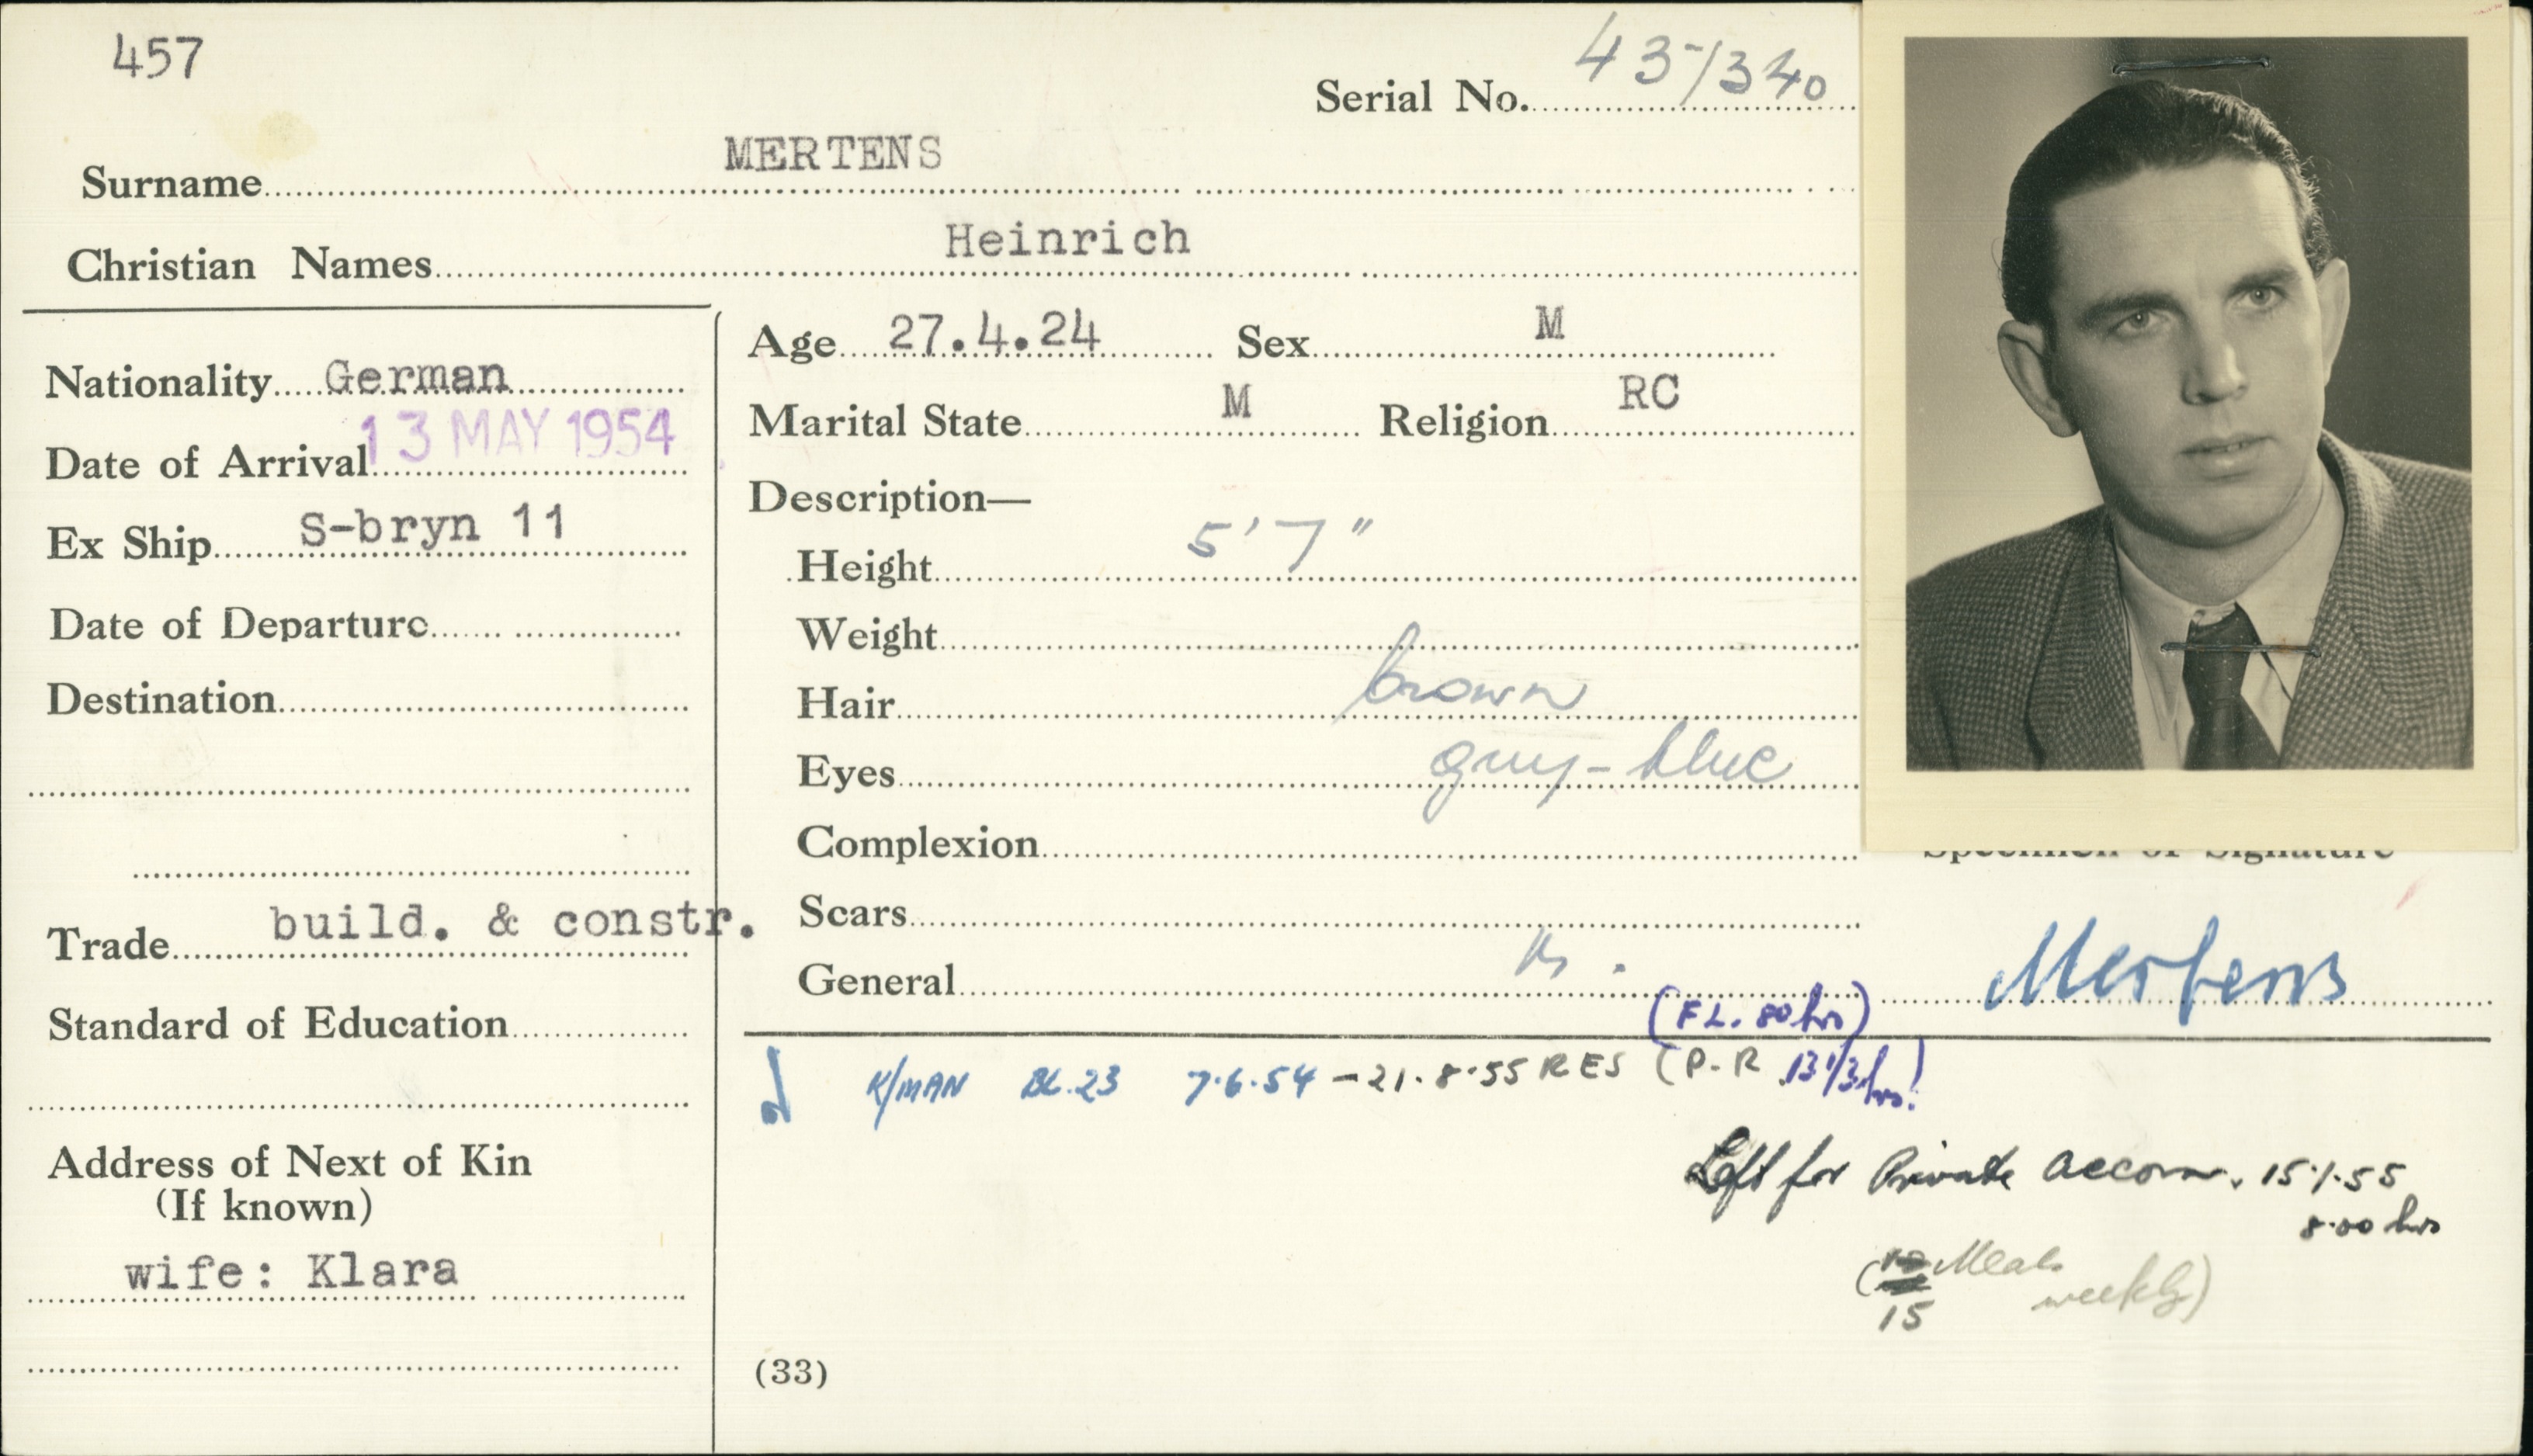 457
Serial No. 43-/340
Surname MERTENS
Christian Names Heinrich
Nationality German
Date of Arrival 13 MAY 1954
Ex Ship S-bryn 11
Date of Departure
Destination
Trade build. & constr.
Standard of Education
Address of Next of Kin
(If known)
wife: Klara
Age 27.4.24 Sex M
Marital State M Religion RC
Description—
Height 5'7"
Weight
Hair brown
Eyes grey-blue
Complexion
Scars
General
Specimen of Signature
Mertens
(F L. 80 hrs)
K/MAN BL.23 7.6.54 - 21.8.55 RES (P.R 13 1/3 hrs!
Left for Private accom. 15.1.55
8.00 hrs
(Meals weekly)
15
(33)